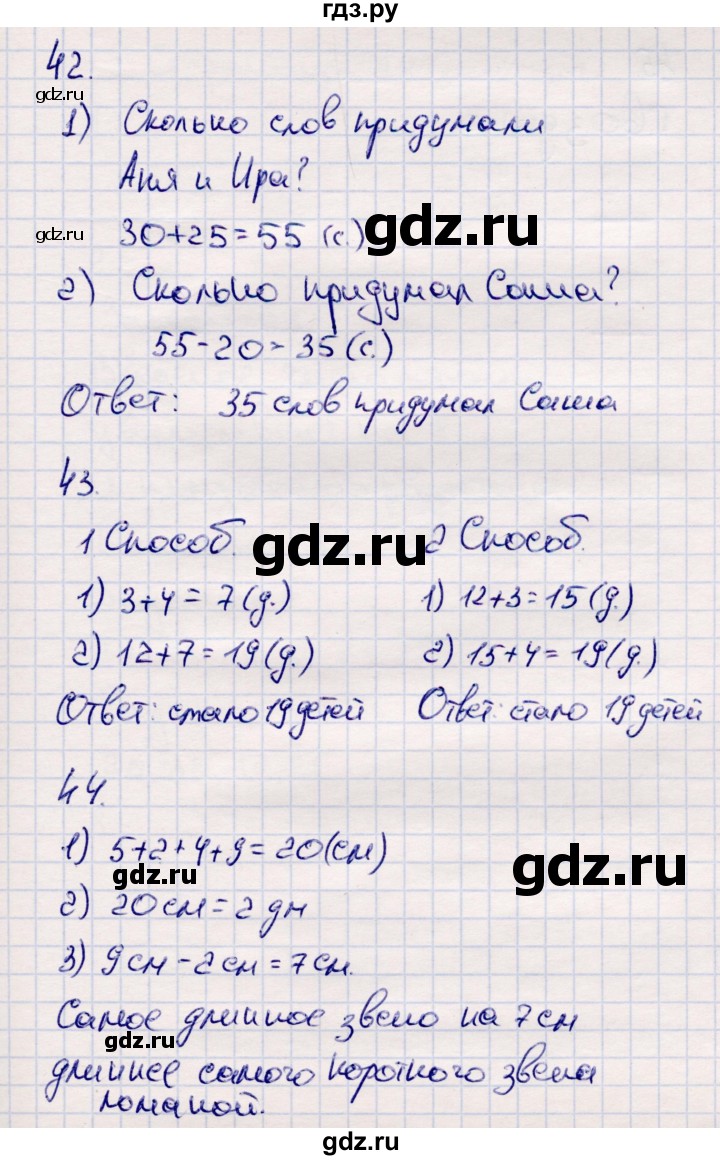 гдз.ру
42.
gdz.ru
1) Сколько слов придумали
Аня и Ира?
gdz.ru
30+25=55 (с.)
gdz.ru
2) Сколько придумал Саша?
55-20=35 (с.)
Ответ: 35 слов придумал Саша
43.
1 Способ. 2 Способ.
gdz.ru
1) 3+4=7 (д.) 1) 12+3=15 (д.)
2) 12+7=19 (д.) 2) 15+4=19 (д.)
Ответ: стало 19 детей Ответ: стало 19 детей
44.
1) 5+2+4+9=20 (см)
gdz.ru
gdz.ru
2) 20 см = 2 дм
3) 9 см - 2 см = 7 см.
Самое длинное звено на 7 см
gdz.ru
длиннее самого короткого звена
ломаной.
gdz.ru